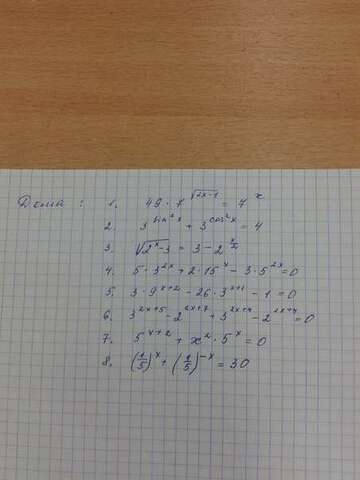 Дома: 1. 49 · 7^√(2x-1) = 7^x
2. 3^(sin²x) + 3^(cos²x) = 4
3. √(2^x - 3) = 3 - 2^(x/2)
4. 5 · 3^(2x) + 2 · 15^x - 3 · 5^(2x) = 0
5. 3 · 9^(x+2) - 26 · 3^(x+1) - 1 = 0
6. 3^(2x+5) - 2^(2x+7) + 3^(2x+4) - 2^(2x+4) = 0
7. 5^(x+2) + x² · 5^x = 0
8. (1/5)^x + (1/5)^(-x) = 30